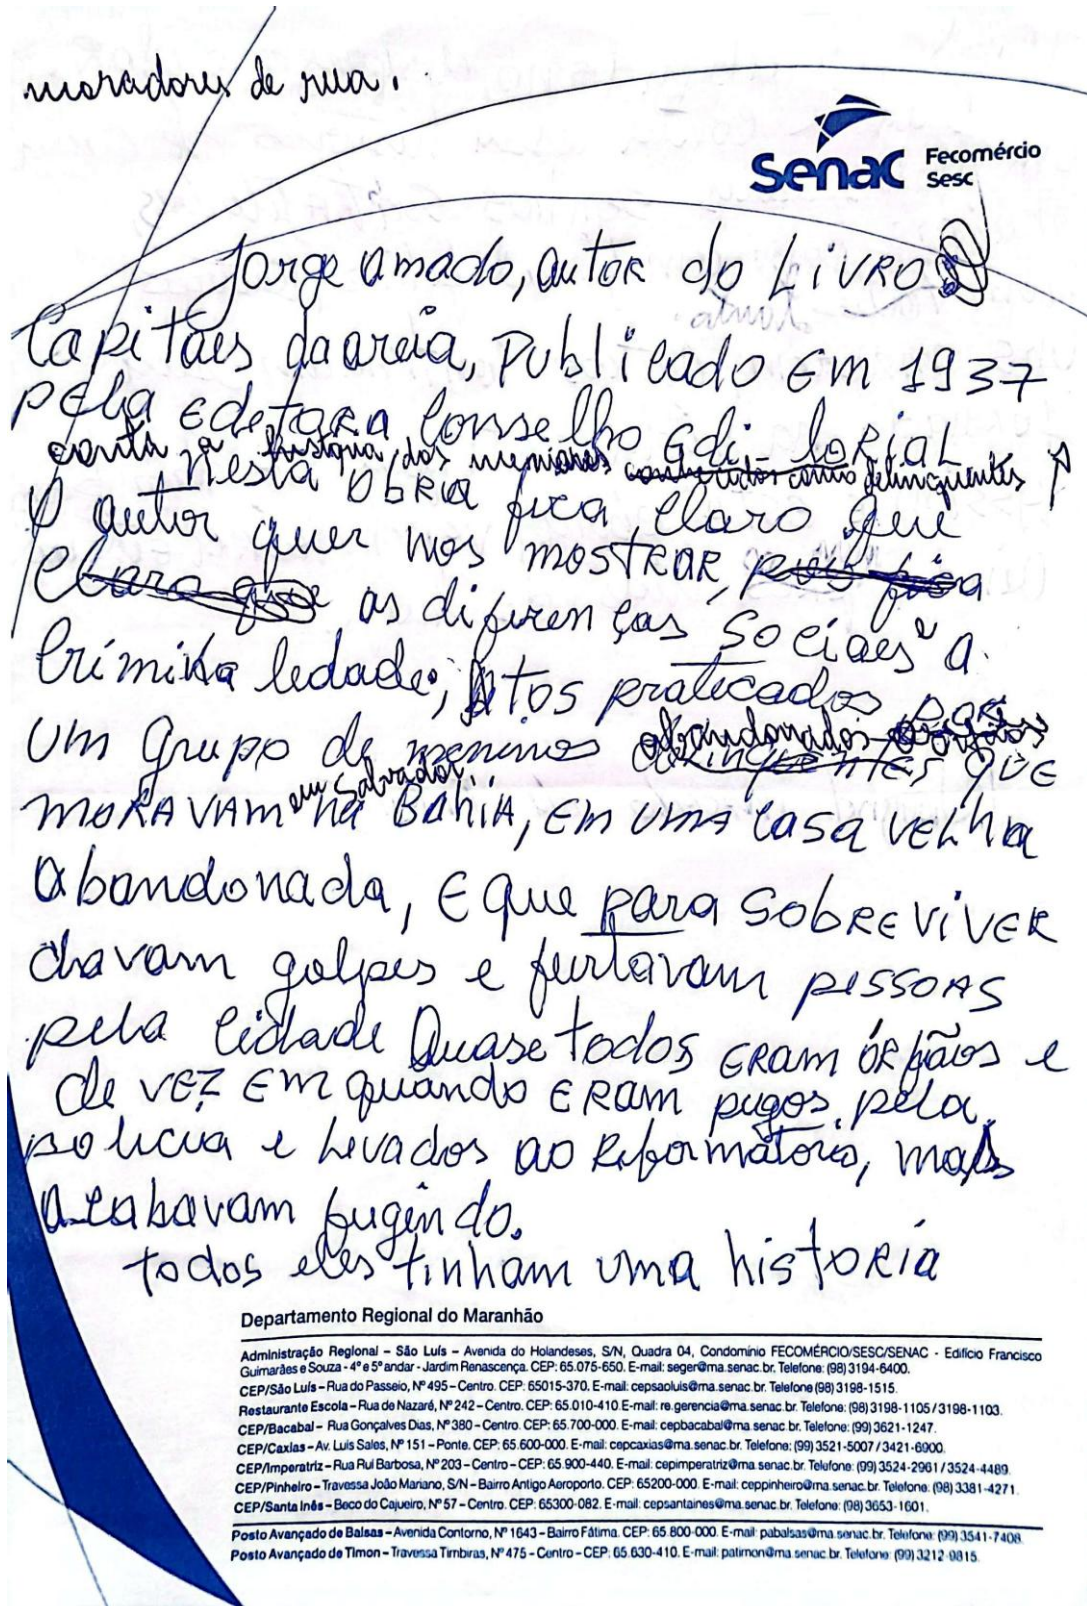 moradores de rua.
Senac Fecomércio
Sesc
Jorge amado, autor do LiVRO
Capitães da areia, Publicado Em 1937
pEla Edetora Conselho Edi-torial
conta a história, dos meninos conhecidos como delinquentes
Nesta ObRia fica claro que
O autor quer nos mostRAR, pois fica
Claro que as diferenças Sociaes e a
Criminaledade, Atos praticados por
abandonados
Um grupo de meninos delinquentes QUE
em Salvador
MORAVAM na BAhiA, Em Uma Casa VELha
Abandonada, E que para SobREViVER
davam golpes e furtavam pEssoAs
pela Cidade Quase todos ERam ÓRfãos e
de VEZ Em quando ERam pegos pela
polícia e Levados ao Reformatório, mas
acabavam fugindo.
todos eles tinham uma histoRia
Departamento Regional do Maranhão
Administração Regional – São Luís – Avenida do Holandeses, S/N, Quadra 04, Condomínio FECOMÉRCIO/SESC/SENAC - Edifício Francisco
Guimarães e Souza - 4º e 5º andar - Jardim Renascença. CEP: 65.075-650. E-mail: seger@ma.senac.br. Telefone: (98) 3194-6400.
CEP/São Luís – Rua do Passeio, Nº 495 – Centro. CEP: 65015-370. E-mail: cepsaoluis@ma.senac.br. Telefone (98) 3198-1515.
Restaurante Escola – Rua de Nazaré, Nº 242 – Centro. CEP: 65.010-410. E-mail: re.gerencia@ma.senac.br. Telefone: (98) 3198-1105 / 3198-1103.
CEP/Bacabal – Rua Gonçalves Dias, Nº 380 – Centro. CEP: 65.700-000. E-mail: cepbacabal@ma.senac.br. Telefone: (99) 3621-1247.
CEP/Caxias – Av. Luis Sales, Nº 151 – Ponte. CEP: 65.600-000. E-mail: cepcaxias@ma.senac.br. Telefone: (99) 3521-5007 / 3421-6900.
CEP/Imperatriz – Rua Rui Barbosa, Nº 203 – Centro – CEP: 65.900-440. E-mail: cepimperatriz@ma.senac.br. Telefone: (99) 3524-2961 / 3524-4489.
CEP/Pinheiro – Travessa João Mariano, S/N – Bairro Antigo Aeroporto. CEP: 65200-000. E-mail: ceppinheiro@ma.senac.br. Telefone: (98) 3381-4271.
CEP/Santa Inês – Beco do Cajueiro, Nº 57 – Centro. CEP: 65300-082. E-mail: cepsantaines@ma.senac.br. Telefone: (98) 3653-1601.
Posto Avançado de Balsas – Avenida Contorno, Nº 1643 – Bairro Fátima. CEP: 65.800-000. E-mail: pabalsas@ma.senac.br. Telefone: (99) 3541-7408
Posto Avançado de Timon – Travessa Timbiras, Nº 475 – Centro – CEP: 65.630-410. E-mail: patimon@ma.senac.br. Telefone: (99) 3212-9815.